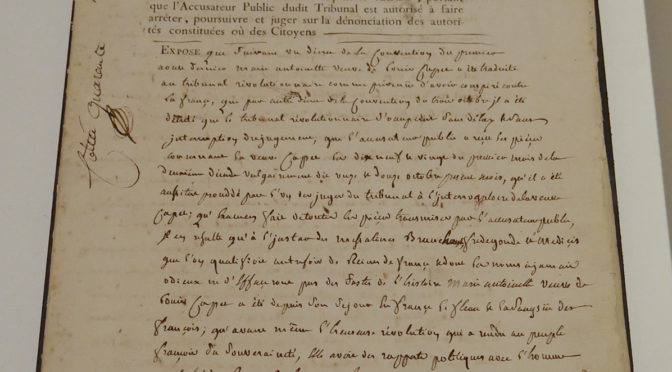 que l'Accusateur Public dudit Tribunal est autorisé à faire
arrêter, poursuivre et juger sur la dénonciation des autori-
tés constituées où des Citoyens
Cotté quarente
EXPOSE que suivant un décret de la Convention du premier
aoust dernier marie antoinette veuve de Louis Capet a été traduite
au tribunal révolutionnaire comme prévenue d'avoir conspiré contre
la france, que par autre décret de la Convention du trois octobre, il a été
décrété que le tribunal révolutionnaire s'occuperoit sans délay et sans
interruption du jugement, que l'accusateur public a reçu les pièces
concernant la veuve Capet les dixneuf et vingt du premier mois de la
deuxième décade vulgairement dit onze et douze octobre présent mois, qu'il a été
aussitôt procédé par l'un des juges du tribunal à l'interrogatoire de la veuve
Capet; qu'examen fait de toutes les pièces transmises par l'accusateur public,
il en résulte qu'à l'instar des messalines Brunehaut, fredegonde et médicis
que l'on qualifioit autrefois de Reines de france et dont les noms à jamais
odieux ne s'effaceront pas des fastes de l'histoire marie antoinette veuve de
Louis Capet a été depuis son séjour en france le fléau et la sangsüe des
françois; qu'avant même l'heureuse révolution qui a rendu au peuple
françois sa souveraineté, elle avoit des rapports politiques avec l'homme